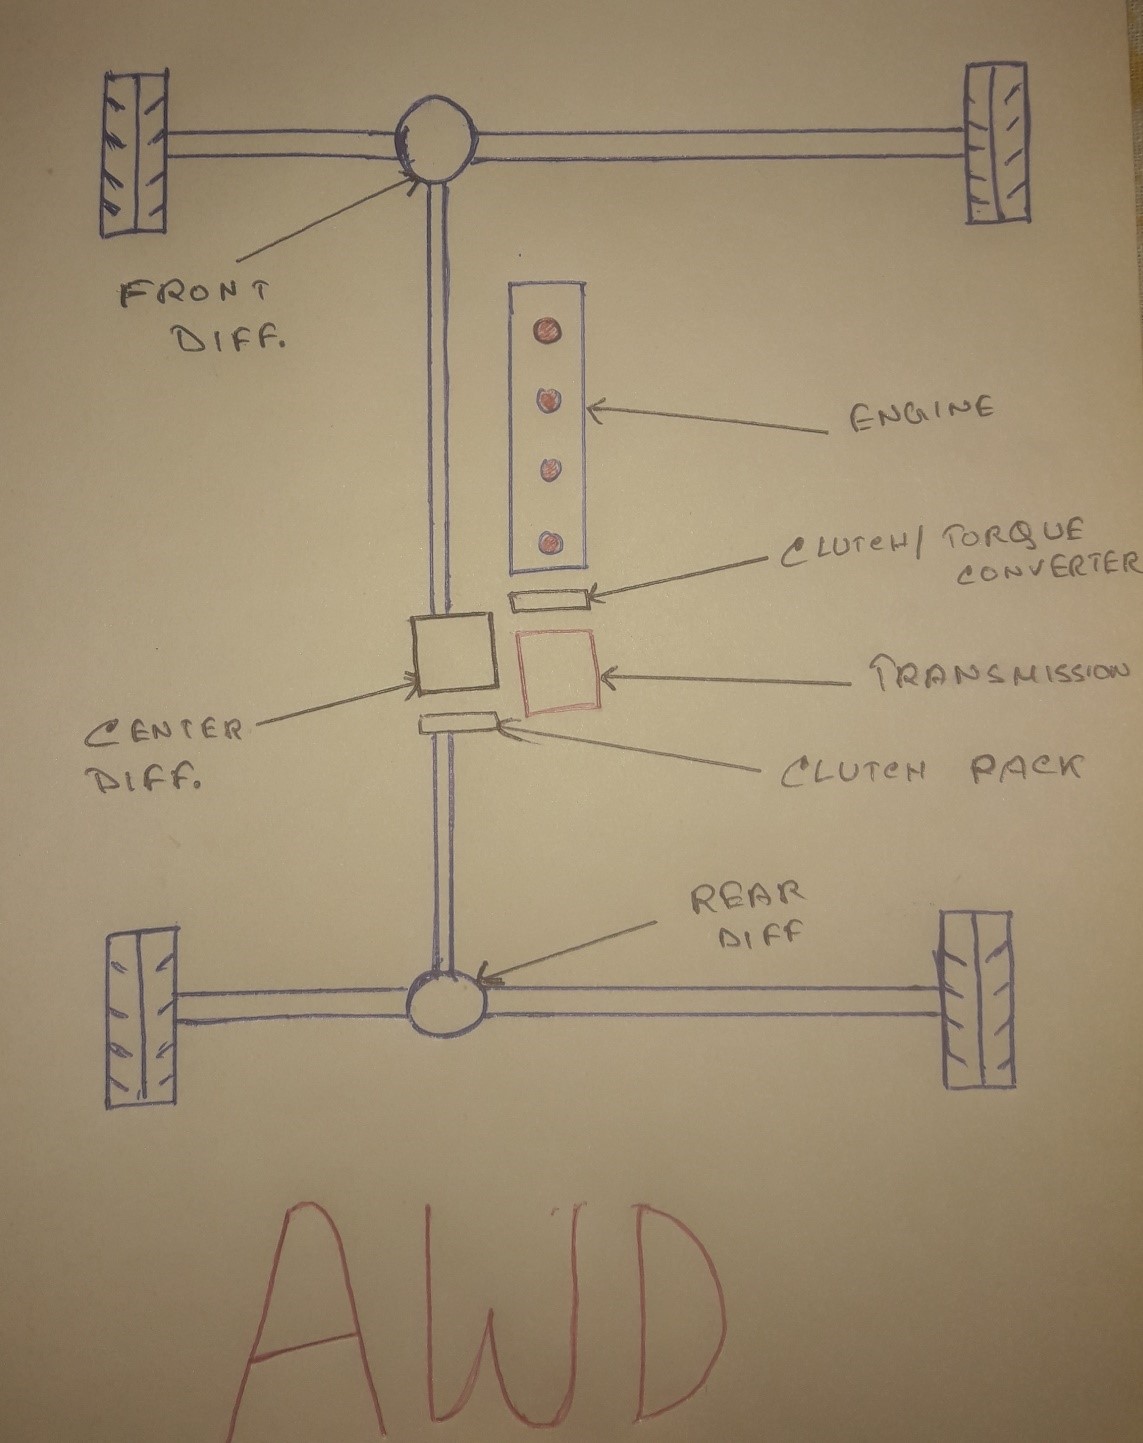 FRONT
DIFF.
ENGINE
CLUTCH/TORQUE
CONVERTER
TRANSMISSION
CENTER
DIFF.
CLUTCH PACK
REAR
DIFF
AWD